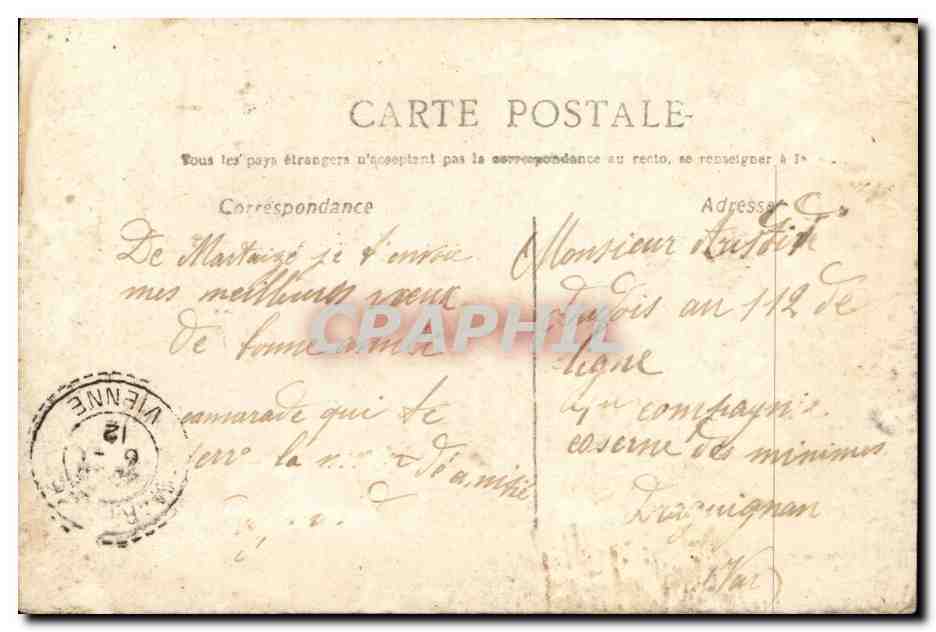 CARTE POSTALE
Tous les pays étrangers n'acceptent pas la correspondance au recto, se renseigner à la
Correspondance
De Martaizé je t'envoie
mes meilleurs vœux
de bonne année
camarade qui te
serre la d'amitié
Adresse
Monsieur
au 112 de
ligne
compagnie
caserne des minimes
Draguignan
Var
VIENNE
12
CPARAMA